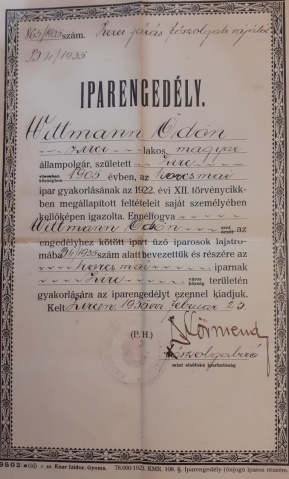 865/1935 szám. Zirci járás főszolgabirájától
34/1935
IPARENGEDÉLY.
Wittmann Ödön
zirci lakos, magyar
állampolgár, született Zirc
községben 1905 évben, az korcsmai
ipar gyakorlásának az 1922. évi XII. törvénycikk-
ben megállapitott feltételeit saját személyében
kellőképen igazolta. Ennélfogva
Wittmann Ödön az
engedélyhez kötött ipart űző iparosok lajstro-
mába 34/1935 szám alatt bevezettük és részére az
korcsmai iparnak
Zirc város község területén
gyakorlására az iparengedélyt ezennel kiadjuk.
Kelt Zircen 1935 évi február 23.
(P. H.)
Körmendy
főszolgabiró
mint elsőfokú iparhatóság
9502/e (új) r. sz. Kner Izidor, Gyoma. 78.000/1923. KMR. 108. §. Iparengedély (önjogú iparos részére)